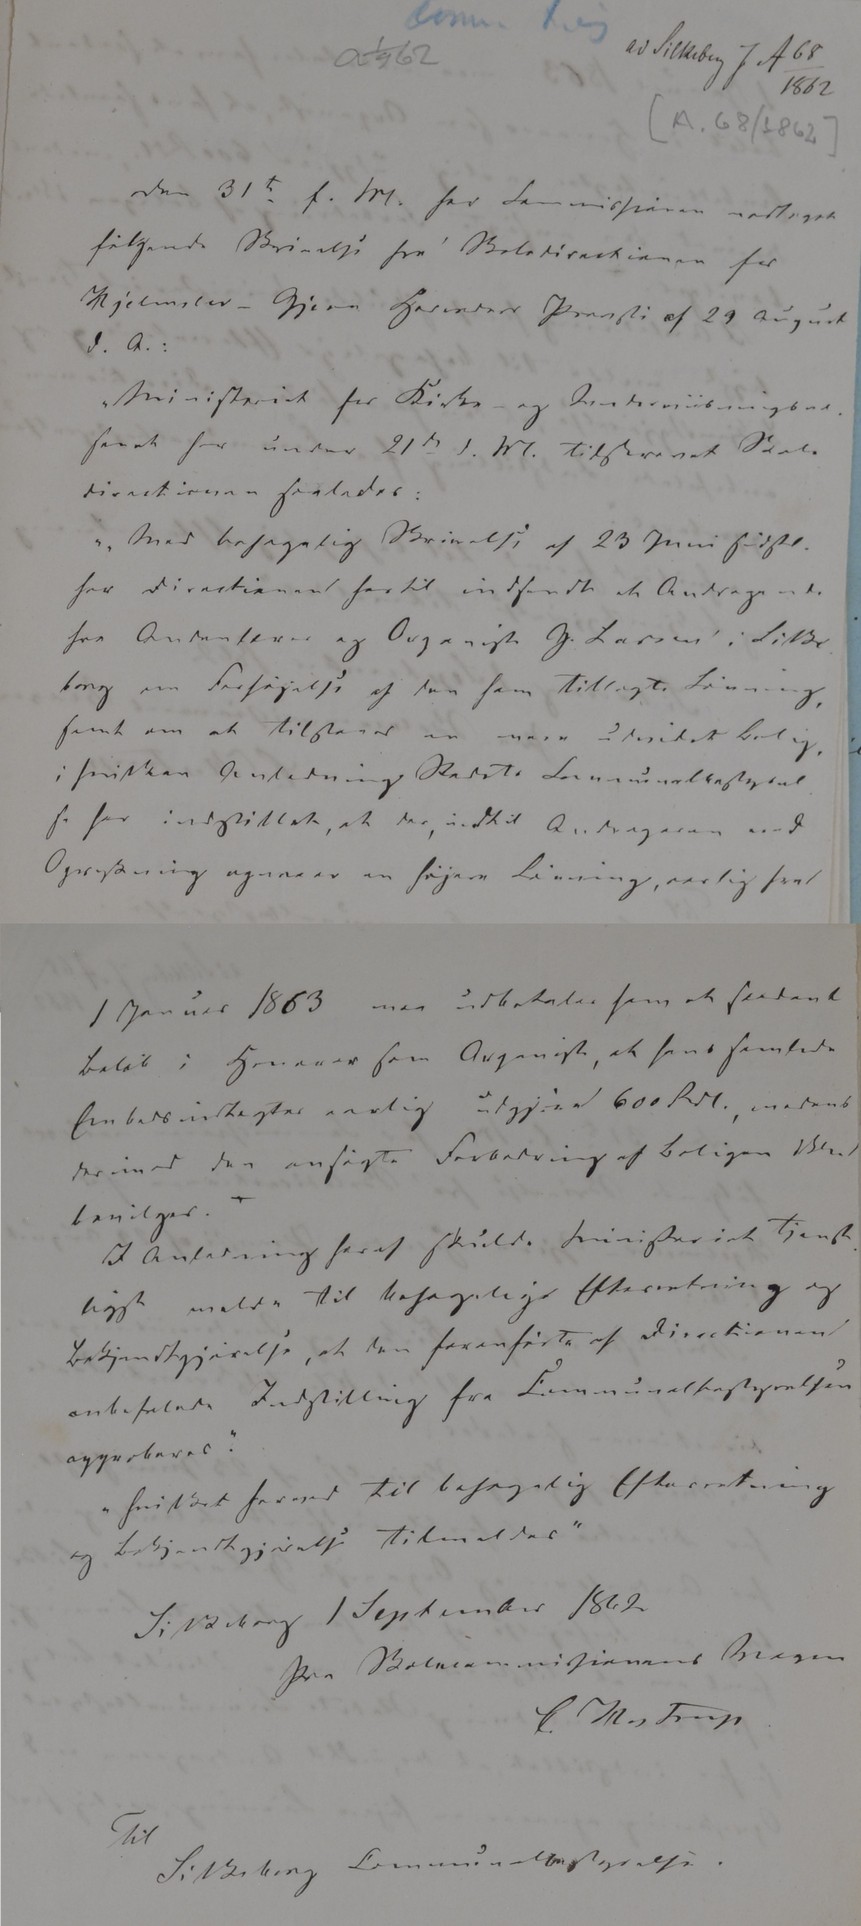 ad Silkeborg J A 68
1862
[A. 68/1862]
Den 31te f. M. har Commissionen modtaget
følgende Skrivelse fra Skoledirectionen for
Hjelmslev-Gjern Herreders Provsti af 29 August
d. A.:
"Ministeriet for Kirke- og Underviisningsvæ-
senet har under 21de d. M. tilskrevet Skole-
directionen saaledes:
"„Med behagelig Skrivelse af 23 Juni sidstl.
har Directionen hertil indsendt et Andragende
fra Andenlærer og Organist J. Larsen i Silke-
borg om Forhøjelse af den ham tillagte Lønning,
samt om at tilstaaes en mere udvidet Bolig,
i hvilken Anledning Stedets Communalbestyrel-
se har indstillet, at der, indtil Andrageren ved
Oprykning opnaaer en højere Lønning, aarlig fra
1 Januar 1863 maa udbetales ham et saadant
Beløb i Honorar som Organist, at hans samlede
Embedsindtægter aarlig udgjøre 600 Rdl., medens
derimod den ansøgte Forbedring af Boligen ikke
bevilges.
I Anledning heraf skulde Ministeriet tjenst-
ligst melde til behagelig Efterretning og
Bekjendtgjørelse, at den foranførte af Directionen
anbefalede Indstilling fra Communalbestyrelsen
approberes".
"hvilket herved til behagelig Efterretning
og Bekjendtgjørelse tilmeldes"
Silkeborg 1 September 1862
Paa Skolecommissionens Vegne
C. Mostrup
Til
Silkeborg Communalbestyrelse.